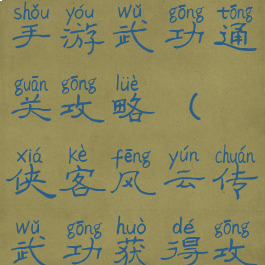 shǒu yóu wǔ gōng tōng
手游武功通
guān gōng lüè
关攻略（
xiá kè fēng yún chuán
侠客风云传
wǔ gōng huò dé gōng
武功获得攻